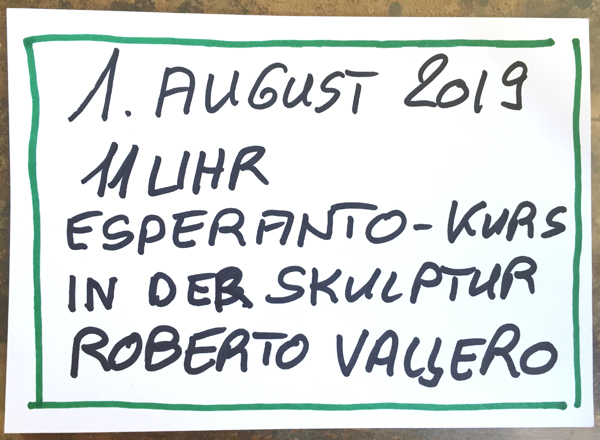 1. AUGUST 2019
11 UHR
ESPERANTO-KURS
IN DER SKULPTUR
ROBERTO VALLERO